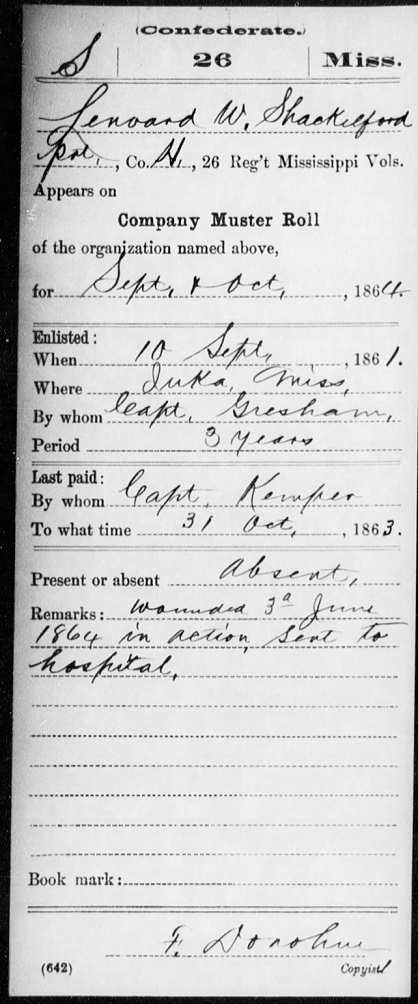 (Confederate.)
S | 26 | Miss.
Lenoard W. Shackelford
Pvt., Co. H., 26 Reg't Mississippi Vols.
Appears on
Company Muster Roll
of the organization named above,
for Sept. & Oct., 1864.
Enlisted:
When 10 Sept., 1861.
Where Iuka, Miss.
By whom Capt. Gresham,
Period 3 years
Last paid:
By whom Capt. Kemper
To what time 31 Oct., 1863.
Present or absent Absent,
Remarks: Wounded 3d June
1864 in action, sent to
hospital.
Book mark:
F. Donohue
(642) Copyist